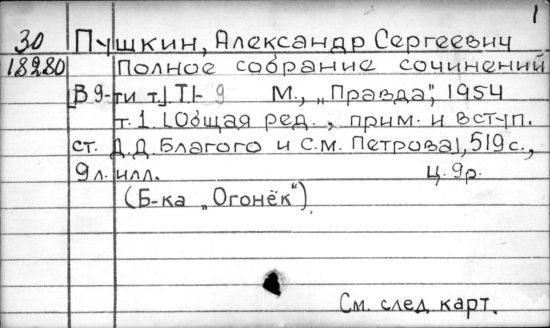 1
30 Пушкин, Александр Сергеевич
18280 Полное собрание сочинений
[В 9-ти т.] Т1- 9 М., „Правда", 1954
т. 1. [Общая ред., прим. и вступ.
ст. Д.Д. Благого и С.М. Петрова], 519 с.,
9 л. илл. Ц. 9р.
(Б-ка „Огонёк")
См. след. карт.